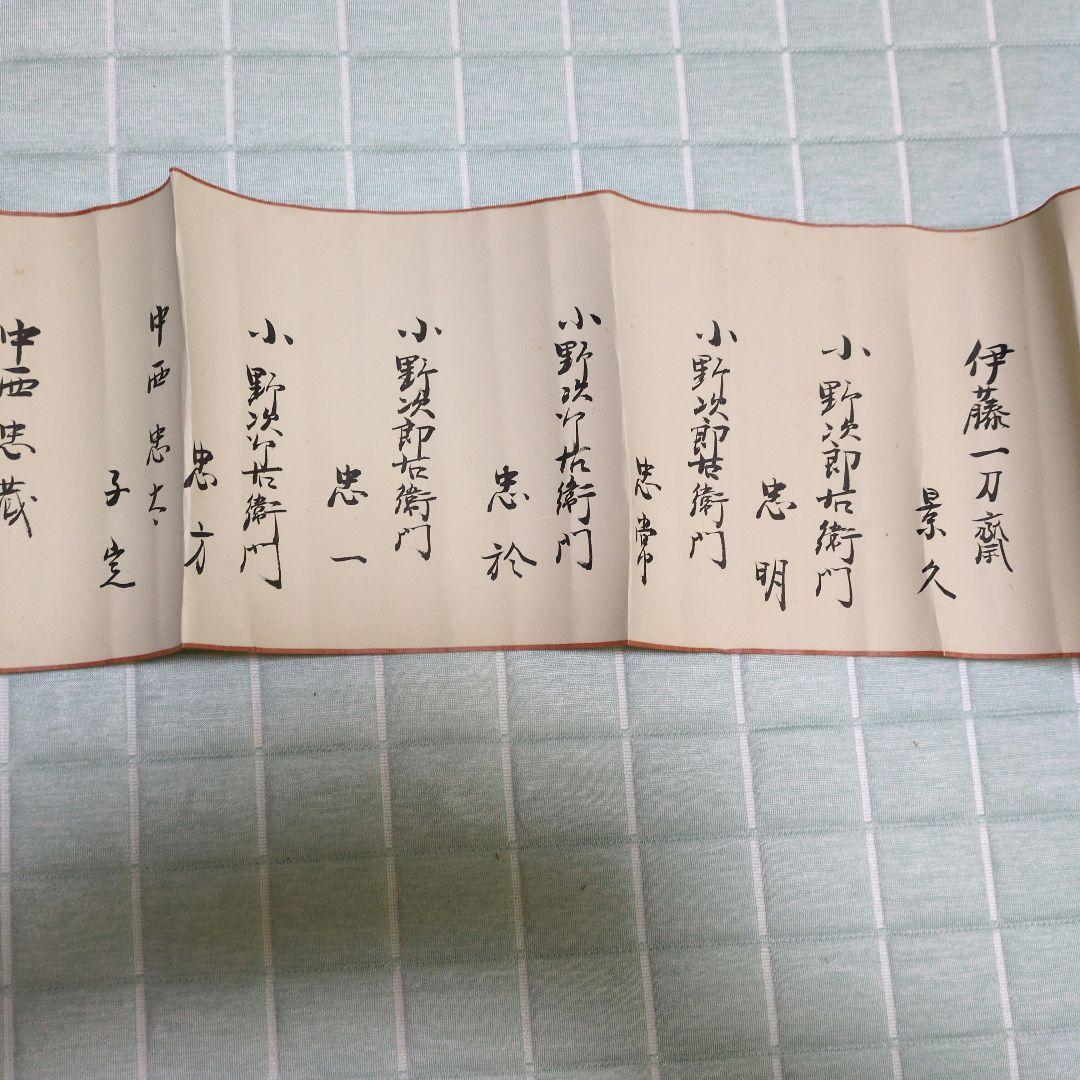 伊藤一刀齋
景久
小野次郎右衛門
忠明
小野次郎右衛門
忠常
小野次郎右衛門
忠於
小野次郎右衛門
忠一
小野次郎右衛門
忠方
中西忠太
子定
中西忠蔵